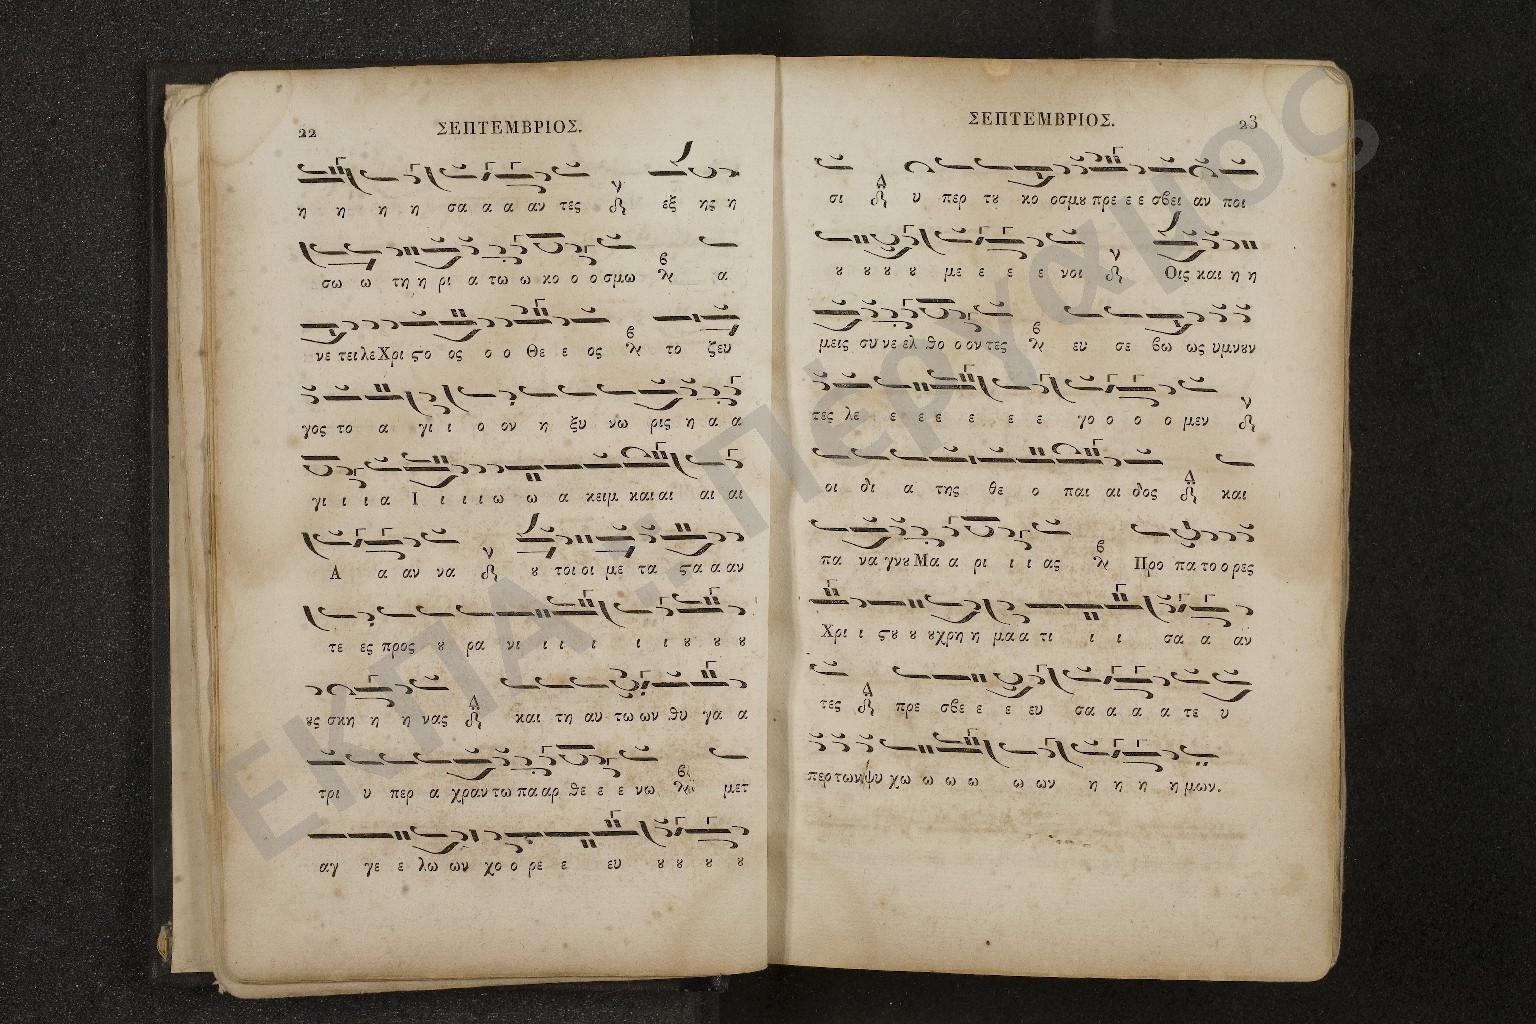 22
ΣΕΠΤΕΜΒΡΙΟΣ.
η η η η σα α α αν τες εξ ης η
σω ω τη η ρι α τω ω κο ο ο σμω α
νε τει λε Χρι ςο ος ο ο Θε ε ος το ζευ
γος το α γι ι ο ον η ξυ νω ρις η α α
γι ι ι α Ι ι ι ι ω ω α κειμ και αι αι αι
Α α αν να ȣ τοι οι με τα ςα α αν
τε ες προς ȣ ρα νι ι ι ι ι ι ȣ ȣ ȣ
ȣς σκη η η νας και τη αυ τω ων θυ γα α
τρι υ περ α χραν τω πα αρ θε ε ε νω μετ
αγ γε ε λω ων χο ο ρε ε ευ ȣ ȣ ȣ ȣ
ΣΕΠΤΕΜΒΡΙΟΣ.
23
σι υ περ τȣ κο οσμȣ πρε ε ε σβει αν ποι
ȣ ȣ ȣ ȣ με ε ε ε νοι Οις και η η
μεις συ νε ελ θο ο ον τες ευ σε βω ως υμνȣν
τες λε ε ε ε ε ε ε γο ο ο ο μεν
οι δι α της θε ο παι αι δος και
πα να γνȣ Μα α ρι ι ι ας Προ πα το ο ρες
Χρι ι ςȣ ȣ ȣ χρη η μα α τι ι ι σα α αν
τες πρε σβε ε ε ευ σα α α α τε υ
περ των ψυ χω ω ω ω ω ων η η η η μων.
ΕΚΠΑ
Πέργαμος